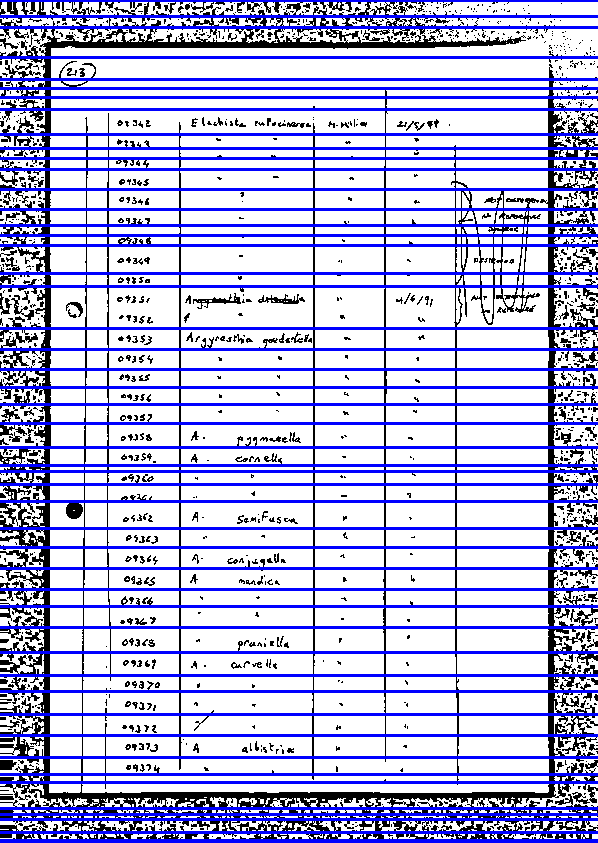 213
09342 Elachista rufocinerea M. Milin 21/5/
09343 " " "
09344 " " " "
09345 " " " "
09346 " " "
09347 " " "
09348 " " "
09349 " " "
09350 "
09351 Argyresthia " 4/6/91
09352 " " "
09353 Argyresthia goedartella " "
09354 " " " "
09355 " " " "
09356 " " " "
09357 " " " "
09358 A. pygmaeella " "
09359 A. cornella " "
09360 " " " "
09361 " " "
09362 A. semifusca " "
09363 " " " "
09364 A. conjugella " "
09365 A mendica " "
09366 " " " "
09367 " " " "
09368 " pruniella " "
09369 A. curvella " "
09370 " " " "
09371 " " " "
09372 " " " "
09373 A albistria " "
09374 " " " "
DESTROYED